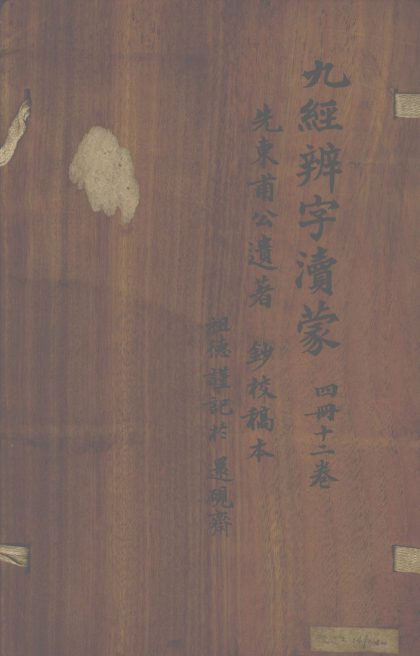 九經辨字瀆蒙 四冊十二卷
先東甫公遺著 鈔校稿本
祖德謹記於 還硯齋